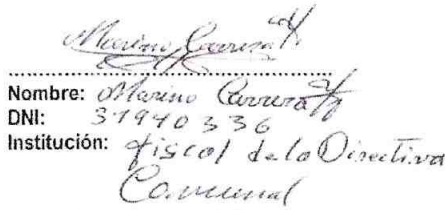 Marino Carrera
Nombre: Marino Carrera
DNI: 31940336
Institución: fiscal de la Directiva
Comunal